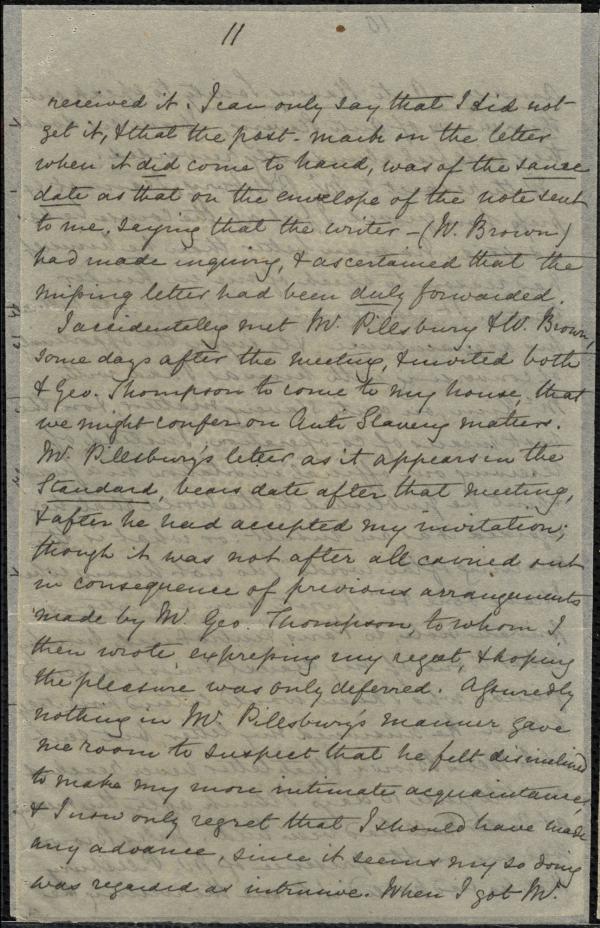 11
received it. I can only say that I did not
get it, & that the post-mark on the letter
when it did come to hand, was of the same
date as that on the envelope of the note sent
to me, saying that the writer - (W. Brown)
had made inquiry, & ascertained that the
missing letter had been duly forwarded.
I accidentally met Mr. Pillsbury & W. Brown,
some days after the meeting, & invited both
& Geo. Thompson to come to my house, that
we might confer on Anti Slavery matters.
Mr. Pillsbury's letter as it appears in the
Standard, bears date after that meeting,
& after he had accepted my invitation;
though it was not after all carried out
in consequence of previous arrangements
made by Mr. Geo. Thompson, to whom I
then wrote, expressing my regret, & hoping
the pleasure was only deferred. Assuredly
nothing in Mr. Pillsbury's manner gave
me room to suspect that he felt disinclined
to make my more intimate acquaintance,
& I now only regret that I should have made
any advance, since it seems my so doing
was regarded as intrusive. When I got Mr.